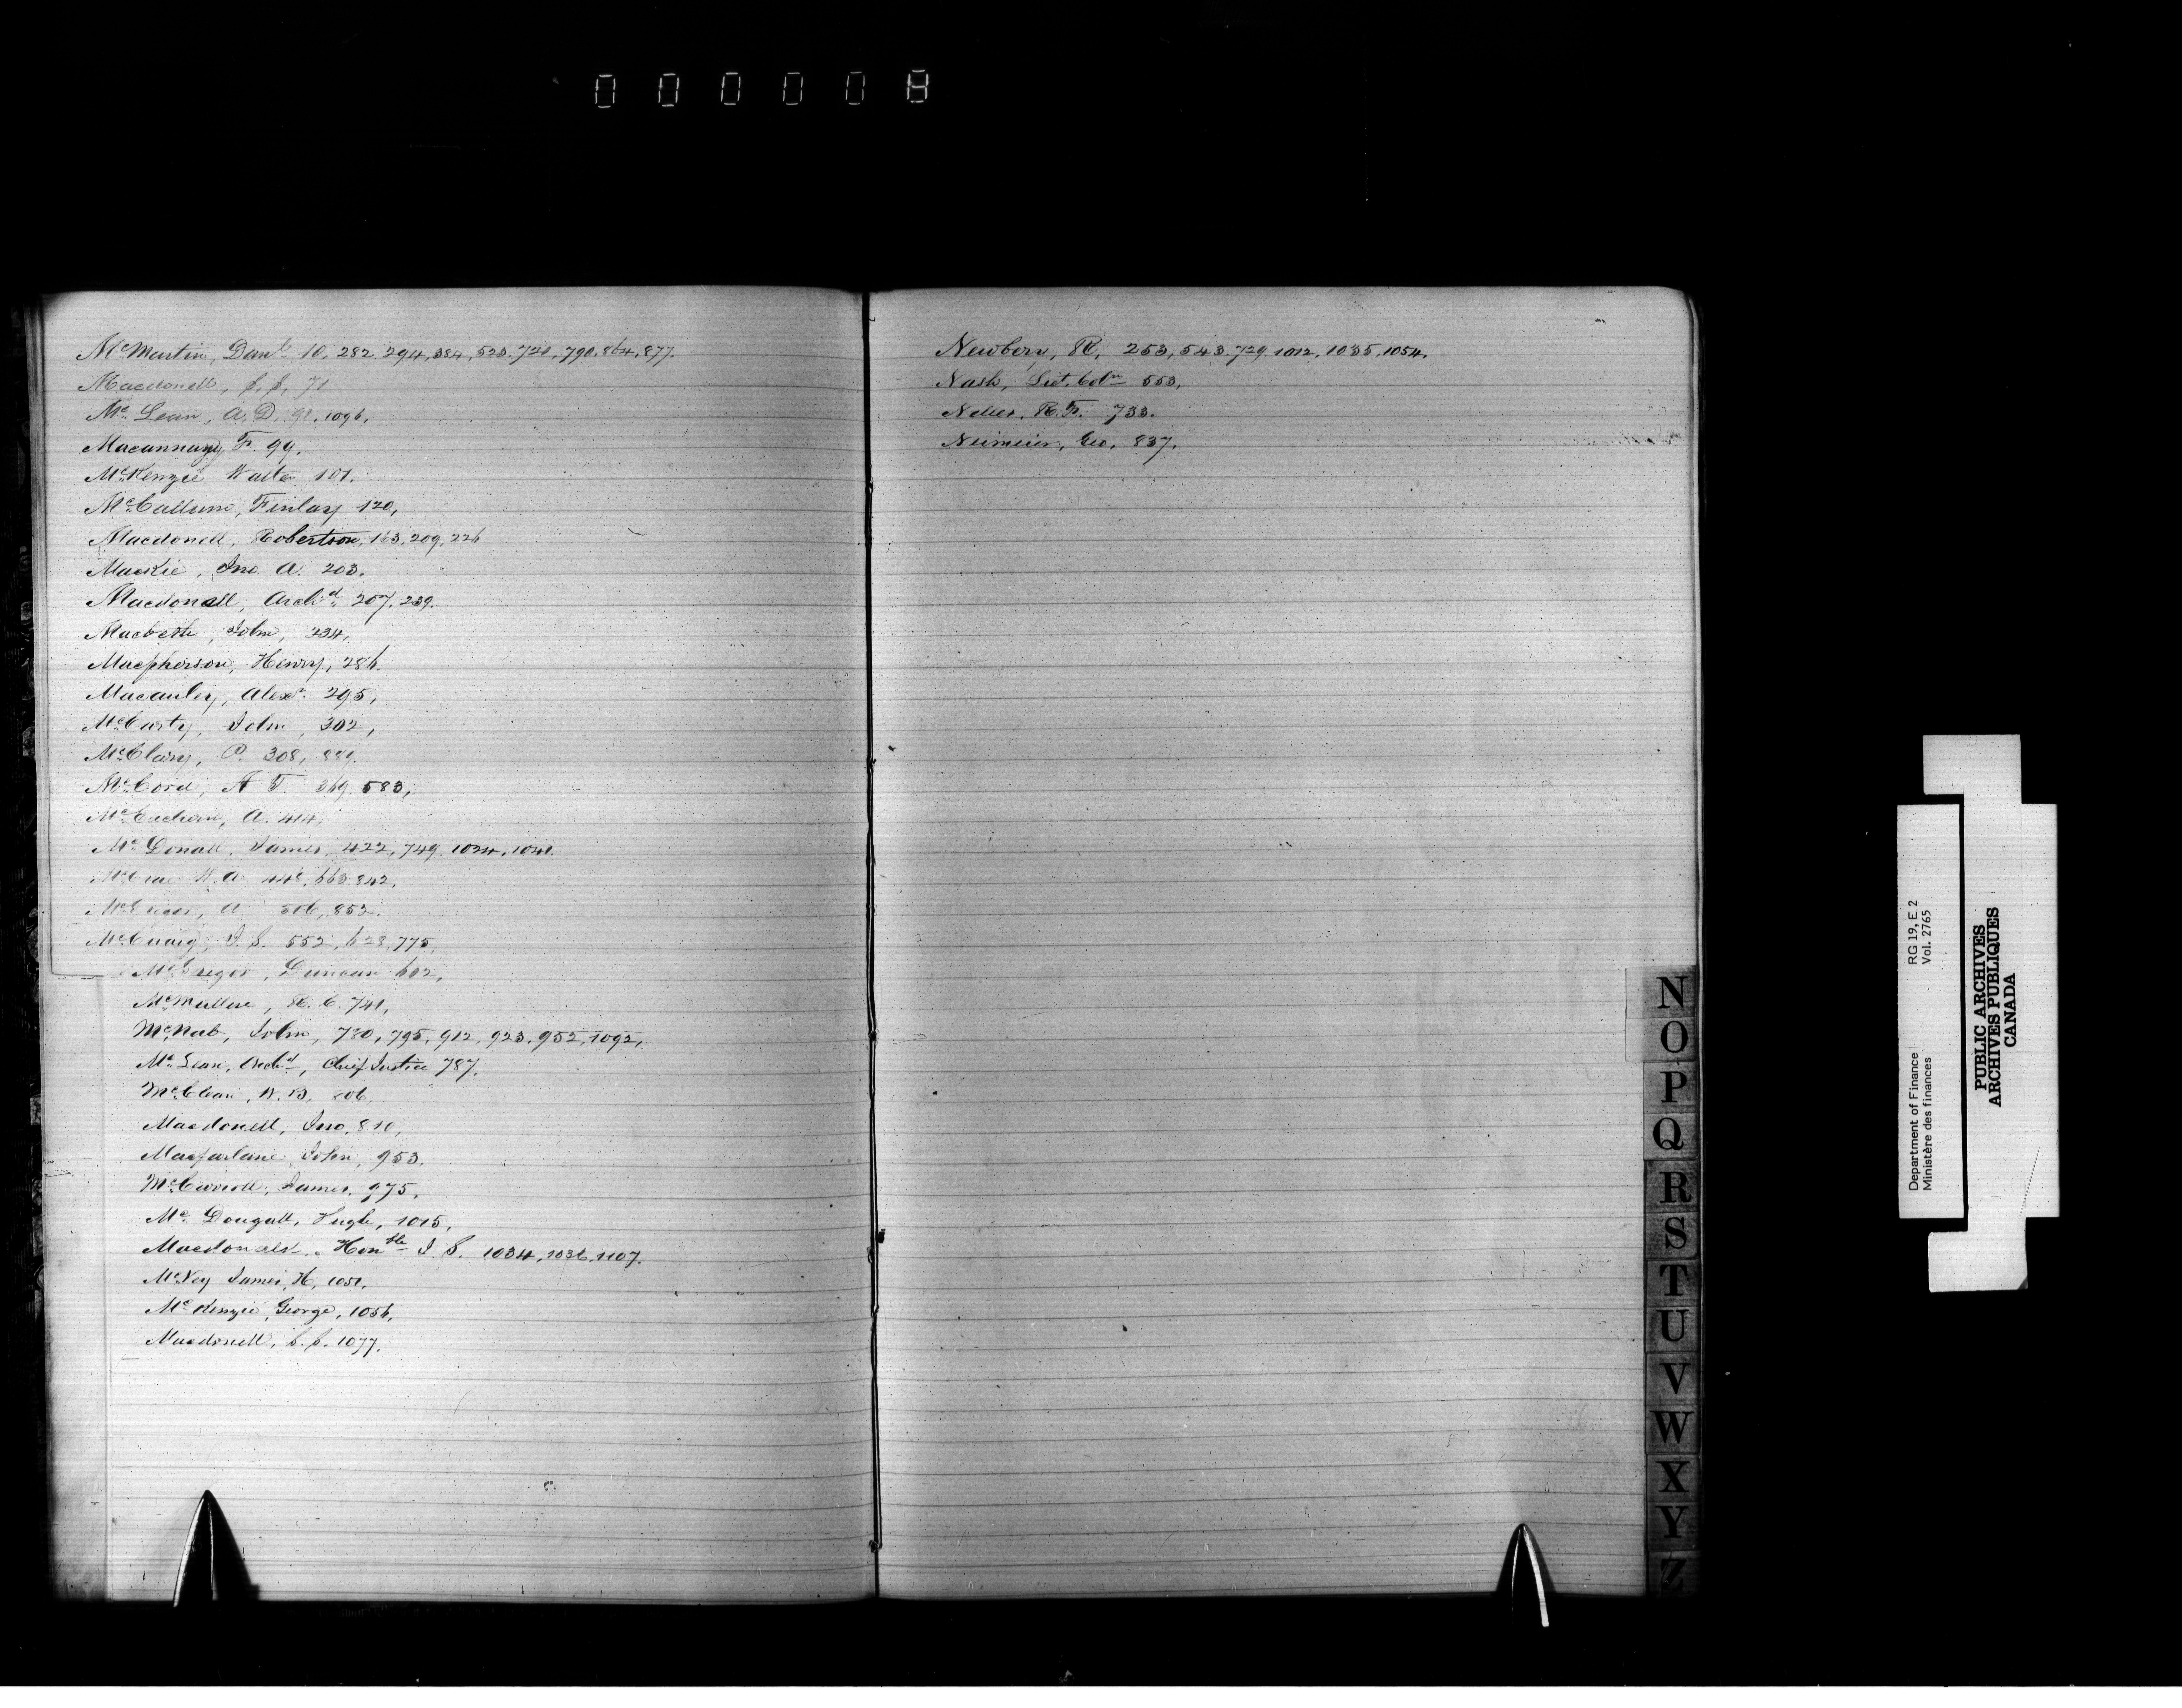 000008
McMartin, Danl 10, 282, 294, 384, 523, 720, 790, 864, 877.
Macdonell, S, S, 71
Mc Lean, A. D. 91, 1096,
Macannany F. 99.
McKenzie Walter 101.
McCallum, Finlay 120,
Macdonell, Robertson, 163, 209, 226
Mackie, Jno. A. 203.
Macdonell, Archd 207, 239.
Macbeth, John, 234,
Macpherson, Henry, 286.
Macauley, Alexr. 295,
McCarty, John, 302,
McClary, P. 308, 889.
McCord, A T. 369, 583,
McEachern, A. 414,
Mc Donall, James, 422, 749, 1024, 1041.
McCrae W. A. 448, 663, 842,
McGregor, A 506, 852.
McCuaig, J. S. 552, 628, 775,
McGregor, Duncan 602,
McMullen, R. C. 741,
McNab, John, 780, 795, 912, 923, 952, 1092,
Mc Lean, Archd, Chief Justice 787.
McClean, W. B. 806,
Macdonell, Jno, 810,
Macfarlane, John, 953.
McCarroll, James, 975,
Mc Dougall, Hugh, 1015,
Macdonald, Honble J. S. 1034, 1036, 1107.
McVey James, H, 1051,
McKenzie, George, 1056,
Macdonell, S. S. 1077.
Newbery, R, 253, 543, 729, 1012, 1035, 1054.
Nash, Lieut. Coln 553,
Nelles, R. F. 733.
Niemeier, Geo, 837,
N
O
P
Q
R
S
T
U
V
W
X
Y
Z
Department of Finance RG 19, E 2
Ministère des finances Vol. 2765
PUBLIC ARCHIVES
ARCHIVES PUBLIQUES
CANADA